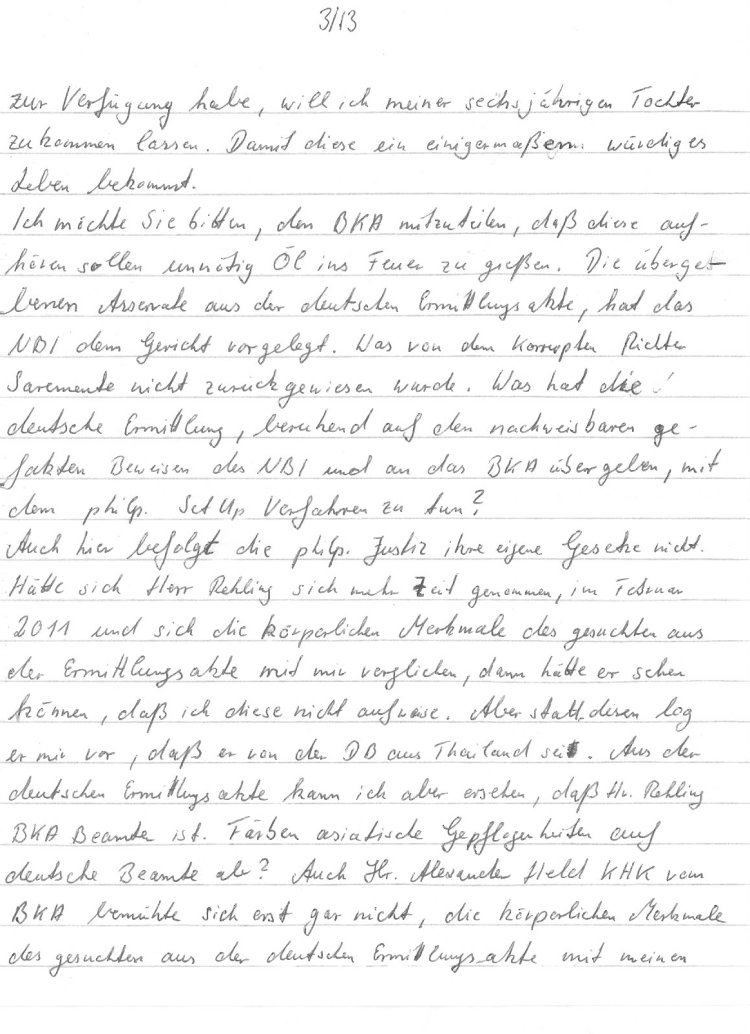 3/13
zur Verfügung habe, will ich meiner sechsjährigen Tochter
zukommen lassen. Damit diese ein einigermaßen würdiges
Leben bekommt.
Ich möchte Sie bitten, den BKA mitzuteilen, daß diese auf-
hören sollen unnötig Öl ins Feuer zu gießen. Die überge-
benen Asservate aus der deutschen Ermittlungsakte, hat das
NBI dem Gericht vorgelegt. Was von dem korrupten Richter
Saremente nicht zurückgewiesen wurde. Was hat die
deutsche Ermittlung, beruhend auf den nachweisbaren ge-
fakten Beweisen des NBI und an das BKA übergeben, mit
dem philp. Set Up Verfahren zu tun?
Auch hier befolgt die philp. Justiz ihre eigene Gesetze nicht.
Hätte sich Herr Rehling sich mehr Zeit genommen, im Februar
2011 und sich die körperlichen Merkmale des gesuchten aus
der Ermittlungsakte mit mir verglichen, dann hätte er sehen
können, daß ich diese nicht aufweise. Aber statt dessen log
er mir vor, daß er von der DB aus Thailand sei. Aus der
deutschen Ermittlungsakte kann ich aber ersehen, daß Hr. Rehling
BKA Beamter ist. Färben asiatische Gepflogenheiten auf
deutsche Beamte ab? Auch Hr. Alexander Held KHK vom
BKA bemühte sich erst gar nicht, die körperlichen Merkmale
des gesuchten aus der deutschen Ermittlungsakte mit meinen